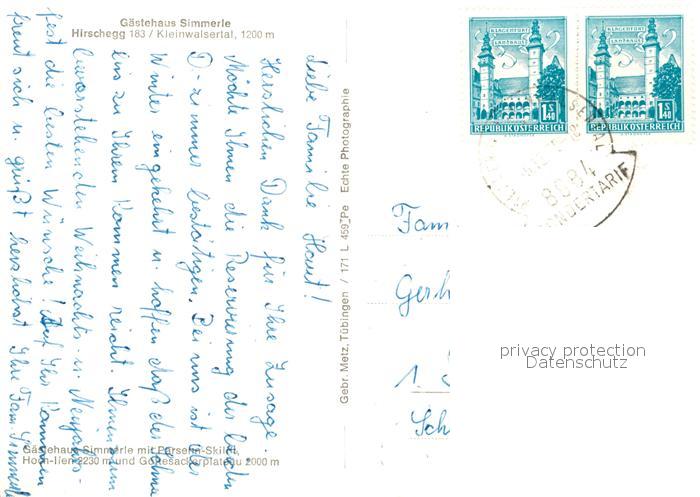 Gästehaus Simmerle
Hirschegg 183 / Kleinwalsertal, 1200 m
Liebe Familie Haut!
Herzlichen Dank für Ihre Zusage.
Möchte Ihnen die Reservierung der beiden
D-zimmer bestätigen. Bei uns ist der
Winter eingekehrt u. hoffen daß der Schnee
bis zu Ihrem Kommen reicht. Ihnen zum
bevorstehenden Weihnachts- u. Neujahrs-
fest die besten Wünsche! Auf Ihr Kommen
freut sich u. grüßt herzlichst Ihre Fam. Simmerle
Gästehaus Simmerle mit Parsenn-Skilift,
2230 m und Gottesackerplateau 2000 m
Gebr. Metz, Tübingen / 171 L 459 Pe Echte Photographie
KLAGENFURT
LANDHAUS
1 S 40
REPUBLIK ÖSTERREICH
KLAGENFURT
LANDHAUS
1 S 40
REPUBLIK ÖSTERREICH
8084
SONDERTARIF
Fam
1
Sch
privacy protection
Datenschutz